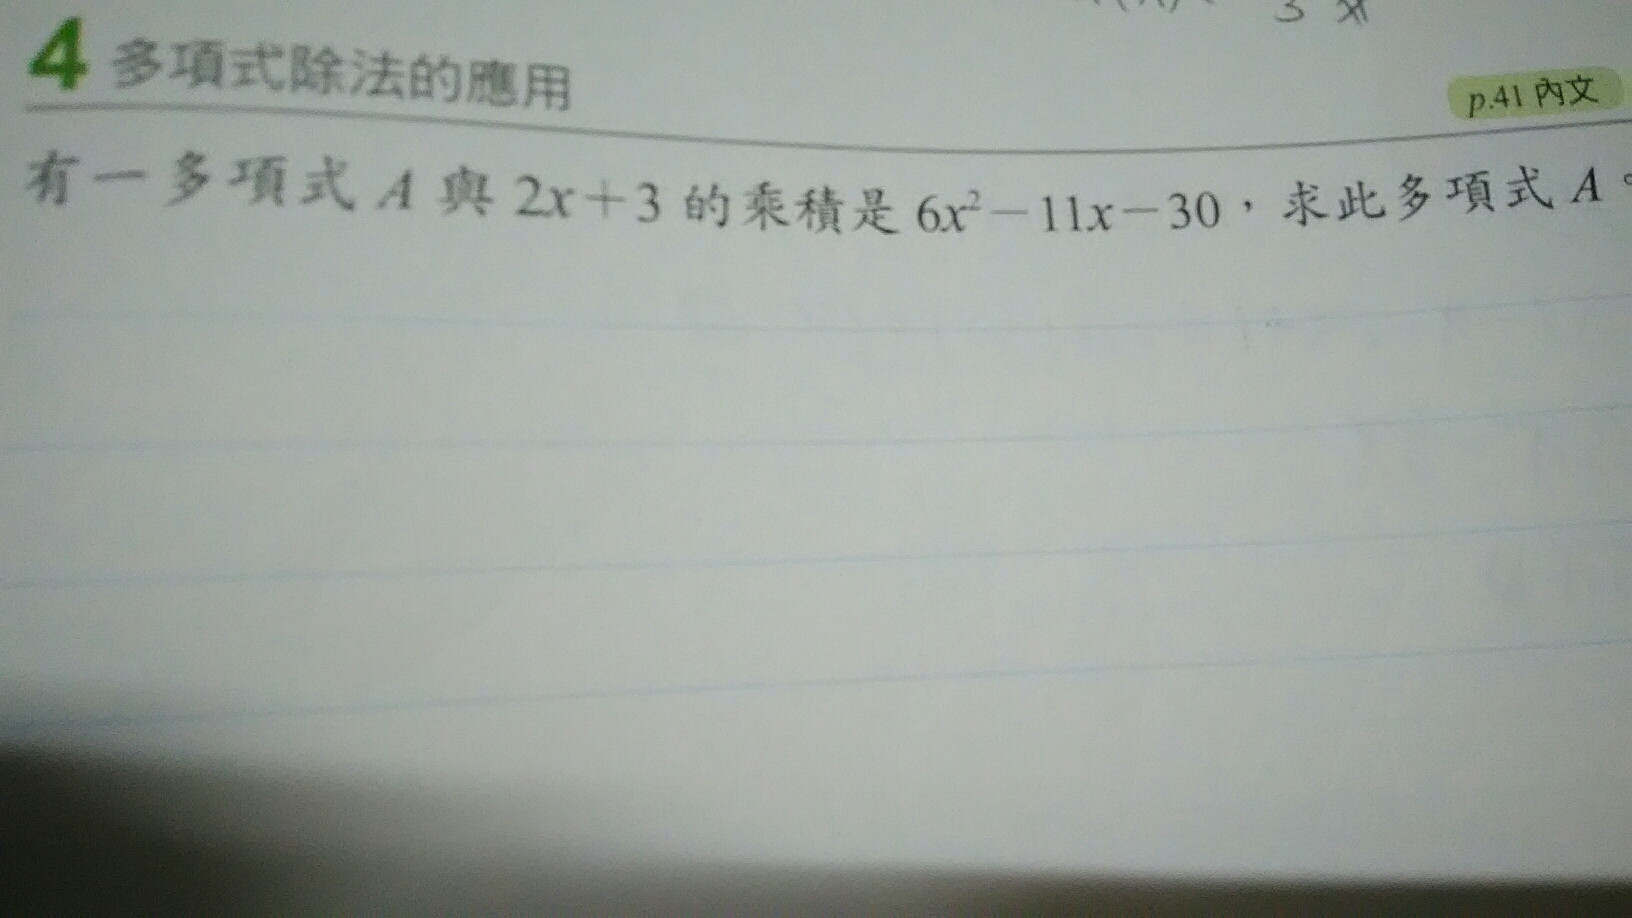 3
4 多項式除法的應用
p.41 內文
有一多項式 A 與 2x+3 的乘積是 6x²−11x−30，求此多項式 A。